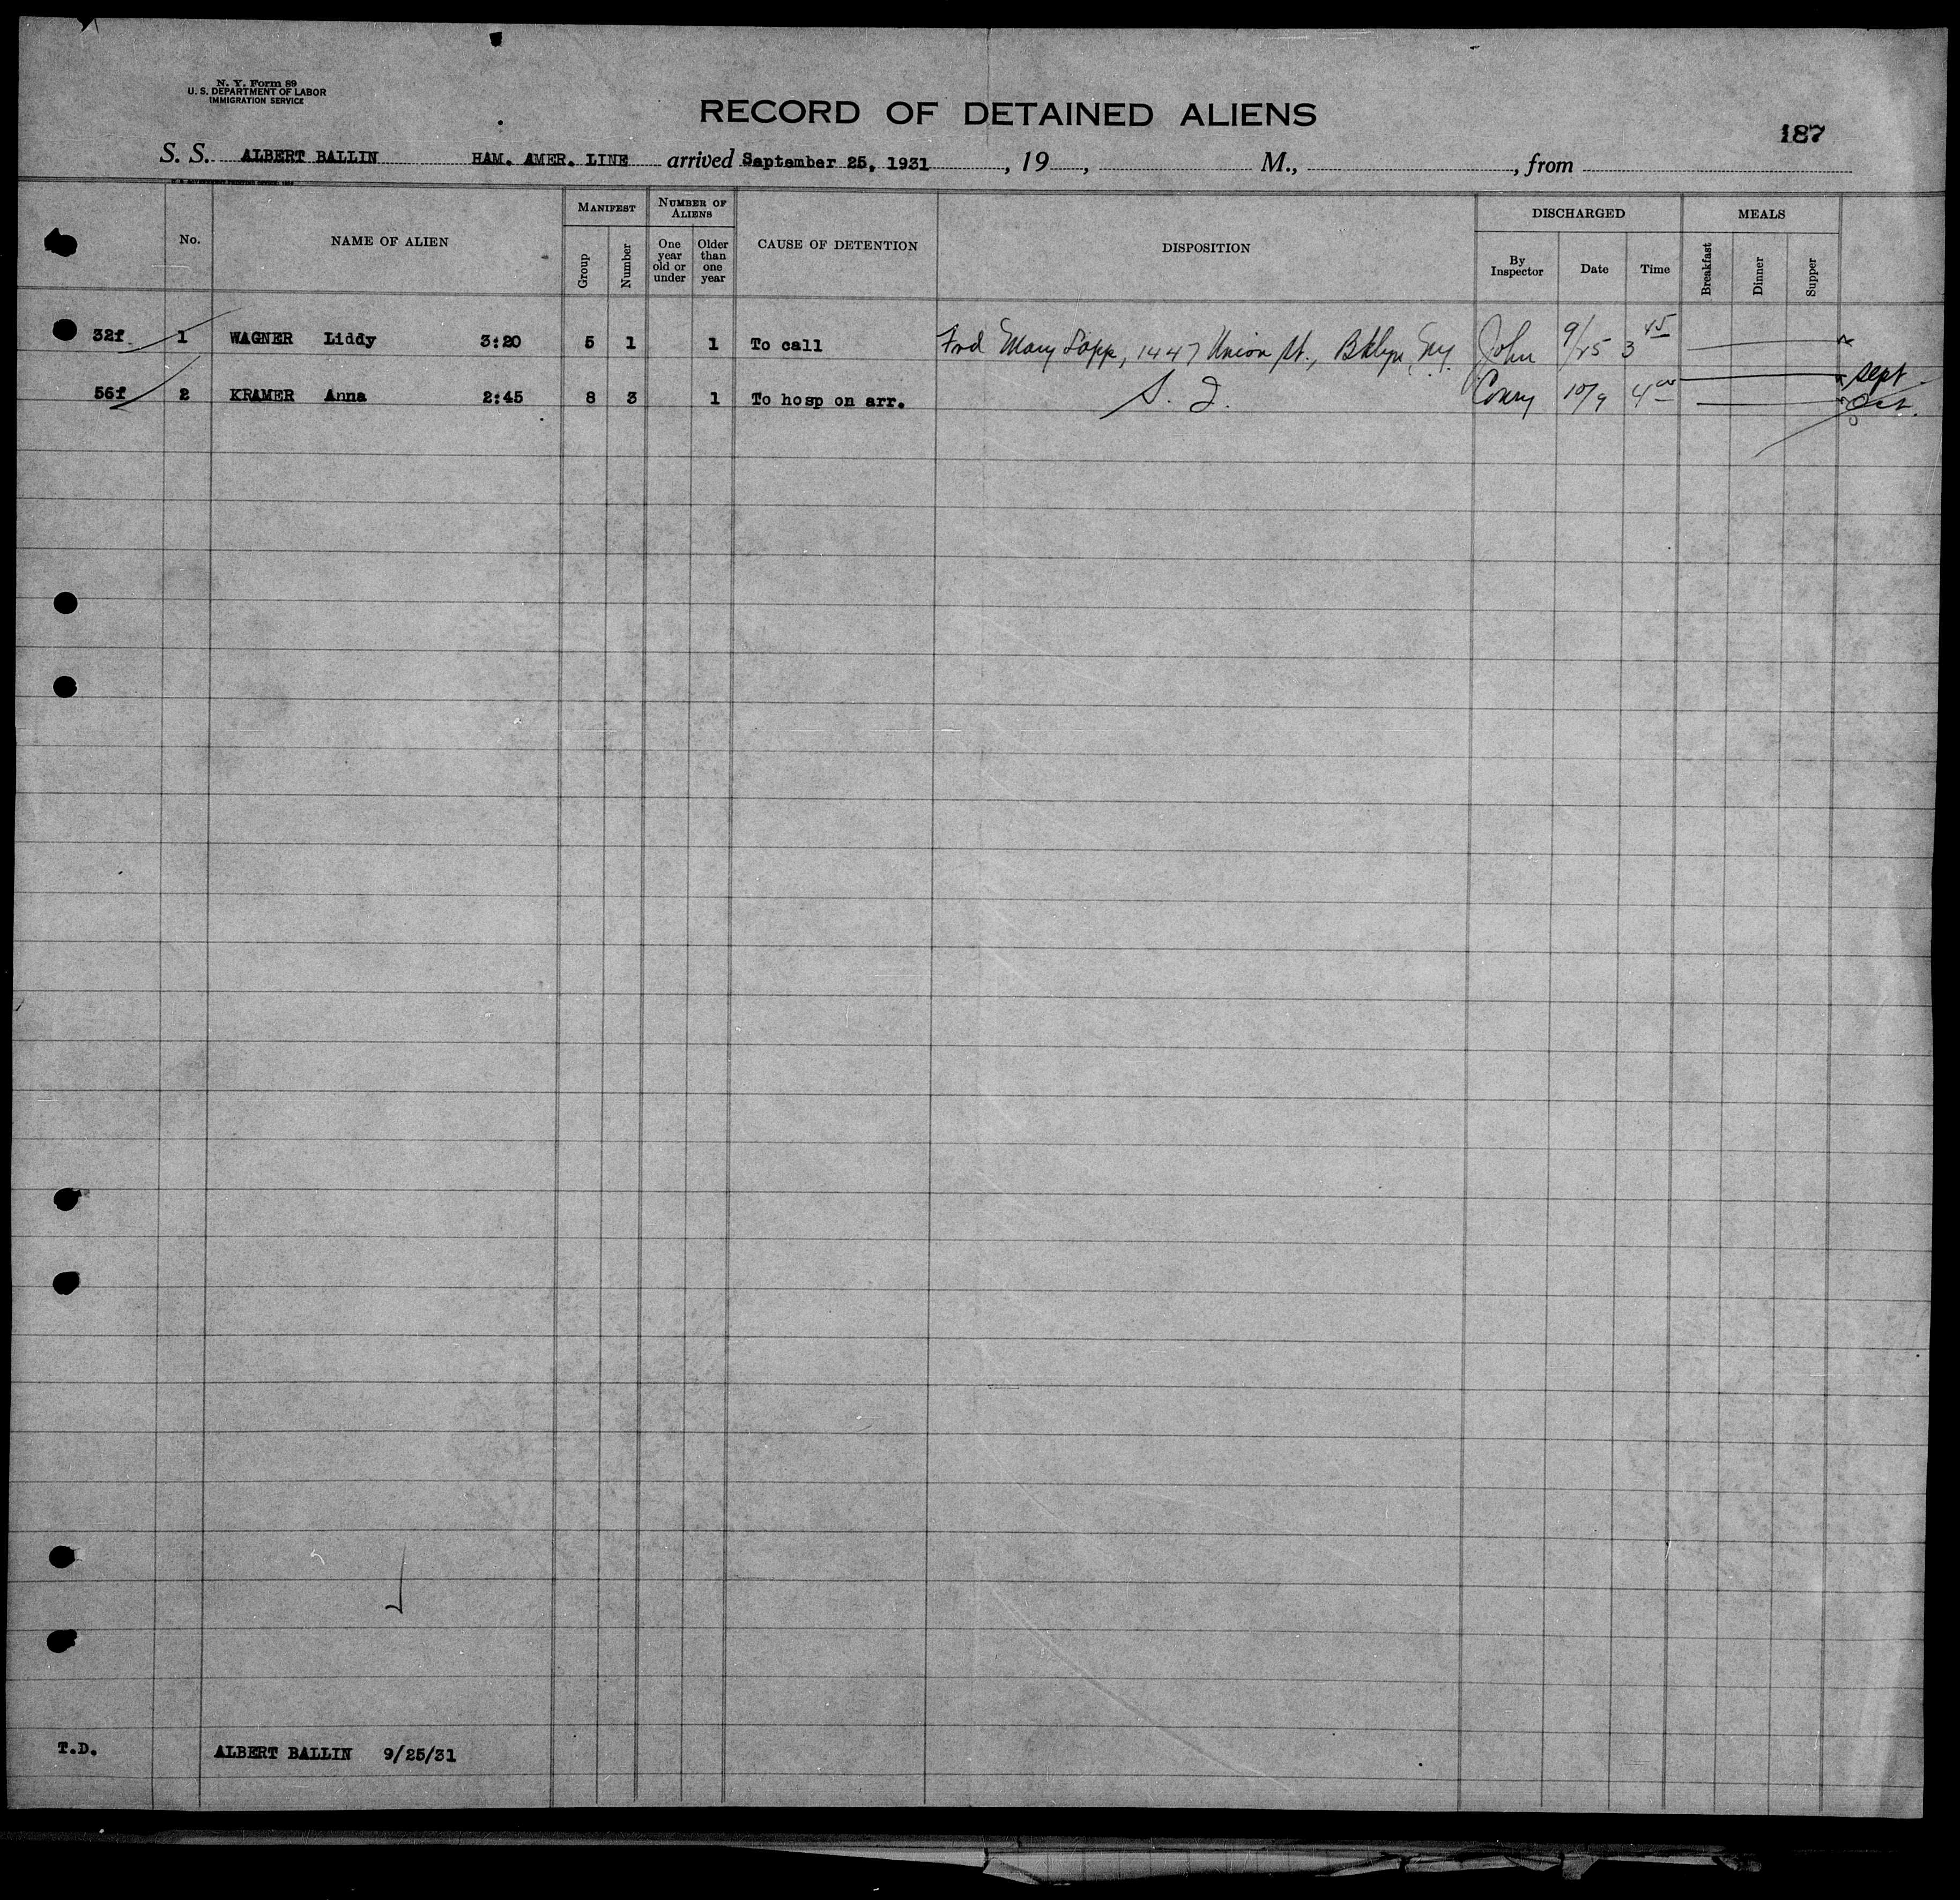 N. Y. Form 89
U. S. DEPARTMENT OF LABOR
IMMIGRATION SERVICE
RECORD OF DETAINED ALIENS
187
S. S. ALBERT BALLIN HAM. AMER. LINE arrived September 25, 1931, 19, M., , from
No.
NAME OF ALIEN
MANIFEST
Group
Number
NUMBER OF ALIENS
One year old or under
Older than one year
CAUSE OF DETENTION
DISPOSITION
DISCHARGED
By Inspector
Date
Time
MEALS
Breakfast
Dinner
Supper
32f 1 WAGNER Liddy 3:20 5 1 1 To call Frd Mary 1447 Union St., Bklyn, Ny. John 9/25 3 45
Sept.
56f 2 KRAMER Anna 2:45 8 3 1 To hosp on arr. S. I. Conry 10/9 4 00 Oct.
T.D. ALBERT BALLIN 9/25/31